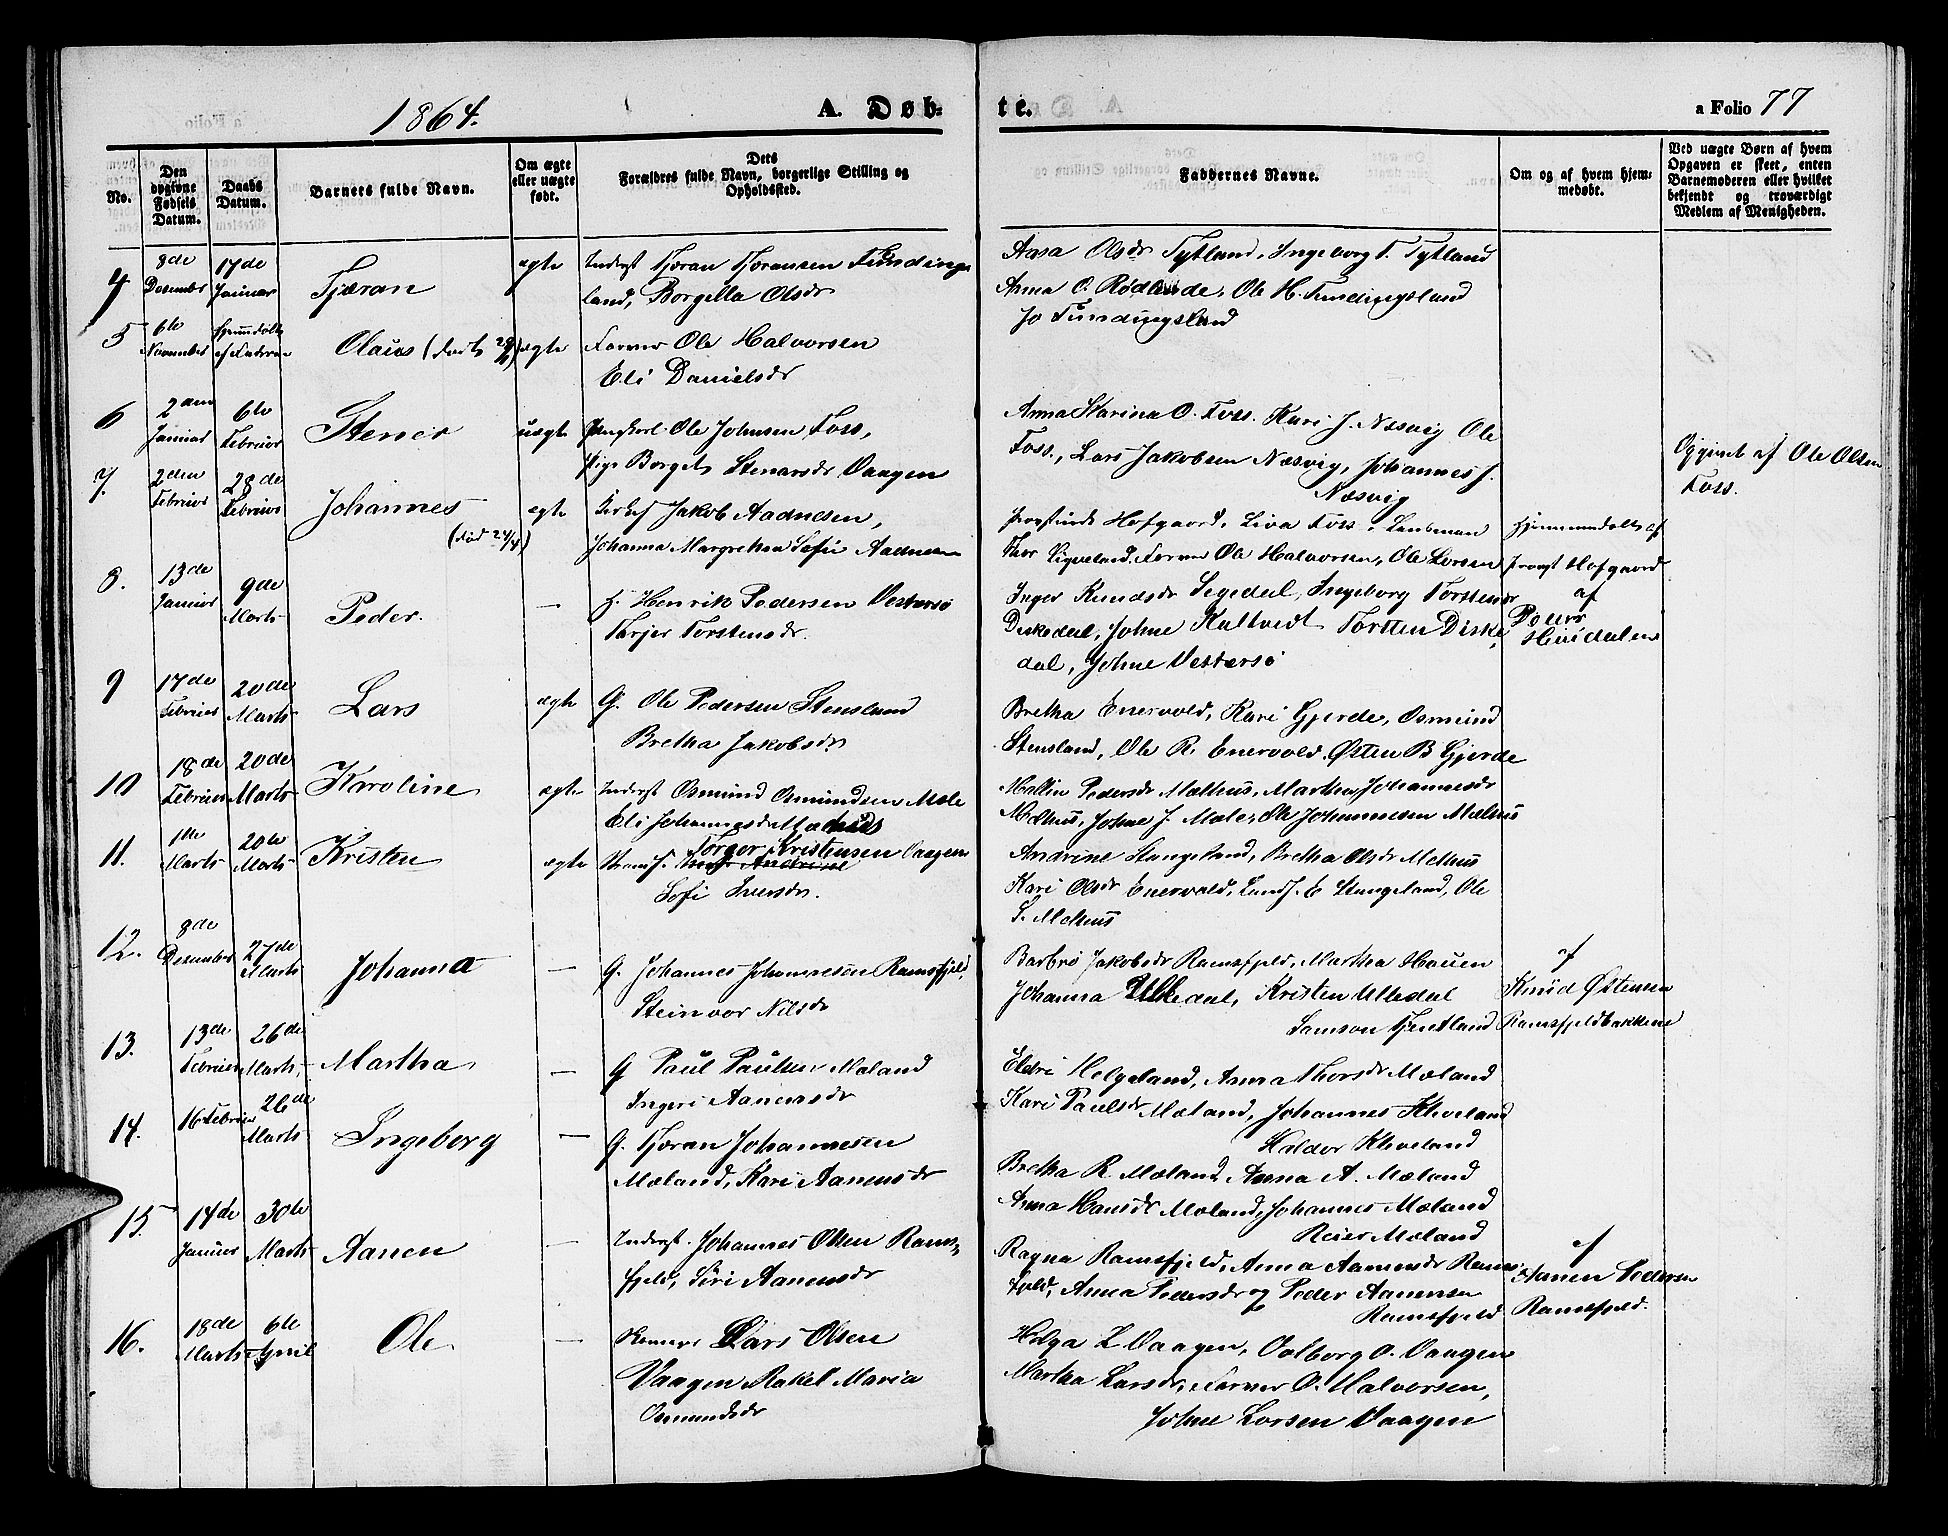 1864. A. Døb-
te. a Folio 77
No.
Den opgivne Fødsels Datum.
Daabs Datum.
Barnets fulde Navn.
Om ægte eller uægte født.
Dets Forældres fulde Navn, borgerlige Stilling og Opholdssted.
Faddernes Navne.
Om og af hvem hjemmedøbt.
Ved uægte Børn af hvem Opgaven er skeet, enten Barnemoderen eller hvilket bekjendt og troværdigt Medlem af Menigheden.
4 8de December 17de Januar Tjæran ægte Inderst Tjæran Tjæransen Tundings
land, Borgilla Olsdr
Anna Olsdr Tytland, Ingeborg T. Tytland
Anna O. Rødlende, Ole H. Tundingsland
Jo Tundingsland
5 6te November Hjemmdøbt af Faderen Olaus (død 29/11) ægte Farver Ole Halvorsen
Eli Danielsdr
6 2den Januar 6te Februar Stener uægte Ungkarl Ole Johnsen Foss,
Pige Borget Stenarsdr Vaagen
Anna Karina O. Foss, Kari J. Næsvig Ole
Foss, Lars Jakobsen Næsvig, Johannes J.
Næsvig
Opgivet af Ole Olsen
Foss.
7. 2den Februar 28de Februar Johannes
(død 24/4) ægte Jakob Aadnesen,
Johanna Margretha Sofie Aadnesen
Provstinde Hofgaard, Liva Foss, Lensman
Thor Ligveland, Farver Ole Halvorsen, Ole Larsen
Hjemmedøbt af
Provst Hofgaard
8. 13de Januar 9de Marts Peder. — H. Henrik Pedersen Vestersø
Tarjer Torstensdr.
Inger Knudsdr Segedal, Ingeborg Torstensdr
Diskedal, Johne Kaltvedt Torsten Diske
dal, Johne Vestersø
af
Poiers
Heisdalen
9 17de Februar 20de Marts Lars ægte G. Ole Pedersen Stensland
Bretha Jakobsdr
Bretha Enervold, Kari Gjerde, Osmund
Stensland, Ole R. Enervold. Østen B Gjerde
10 18de Februar 20de Marts Karoline ægte Inderst Osmund Osmundsen Mæle
Eli Johannesdr
Mallin Pedersdr Mælhus, Martha Johannesdr
Mælhus, Johne J. Mæle, Ole Johannesen Mælhus
11. 1ste Marts 20de Marts Kristen ægte Torger Kristensen Vaagen
Sofi Iversdr.
Andrine Stangeland, Bretha Olsdr Mehus
Kari Olsdr Enervold, Landh. E Stangeland, Ole
S. Mehus
12. 8de December 27de Marts Johanna — G. Johannes Johannesen Ramsfjeld,
Steinvor Nilsdr
Barbrø Jakobsdr Ramsfjeld, Martha Hauen
Johanna Ulledal, Kristen Ulledal
Samson Tjentland
af
Knud Østensen
Ramsfjeldbakkene
13. 13de Februar 26de Marts, Martha — G Paul Paulsen Mæland
Ingeri Aanensdr
Eldri Helgeland, Anna Thorsdr Mæland
Kari Paulsdr Mæland, Johannes Kleveland
Haldor Kleveland
14. 16 Februar 26de Marts Ingeborg — G. Tjæran Johannesen
Mæland, Kari Aanensdr
Bretha R. Mæland, Anna A. Mæland
Anna Hansdr Mæland, Johannes Mæland
Reier Mæland
15 14de Januar 30te Marts Aanen — Inderst. Johannes Olsen Rams-
fjeld, Siri Aanensdr
Ragna Ramsfjeld, Anna Aanensdr Rams-
fjeld, Anna Pedersdr og Peder Aanensen
Ramsfjeld
af
Aanen Pedersen
Ramsfjeld.
16. 18de Marts 6te April Ole — Lars Olsen
Vaagen Rakel Maria
Osmundsdr
Helga L Vaagen, Valborg O. Vaagen
Martha Larsdr, Farver O. Halvorsen,
Johne Larsen Vaagen